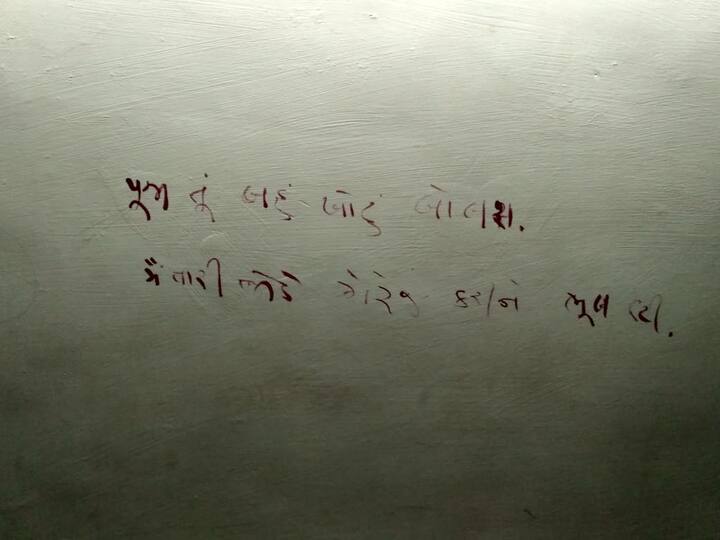 પૂજા તું બહું ખોટું બોલસ.
મેં તારી જોડે મેરેજ કરીને ભૂલ કરી.